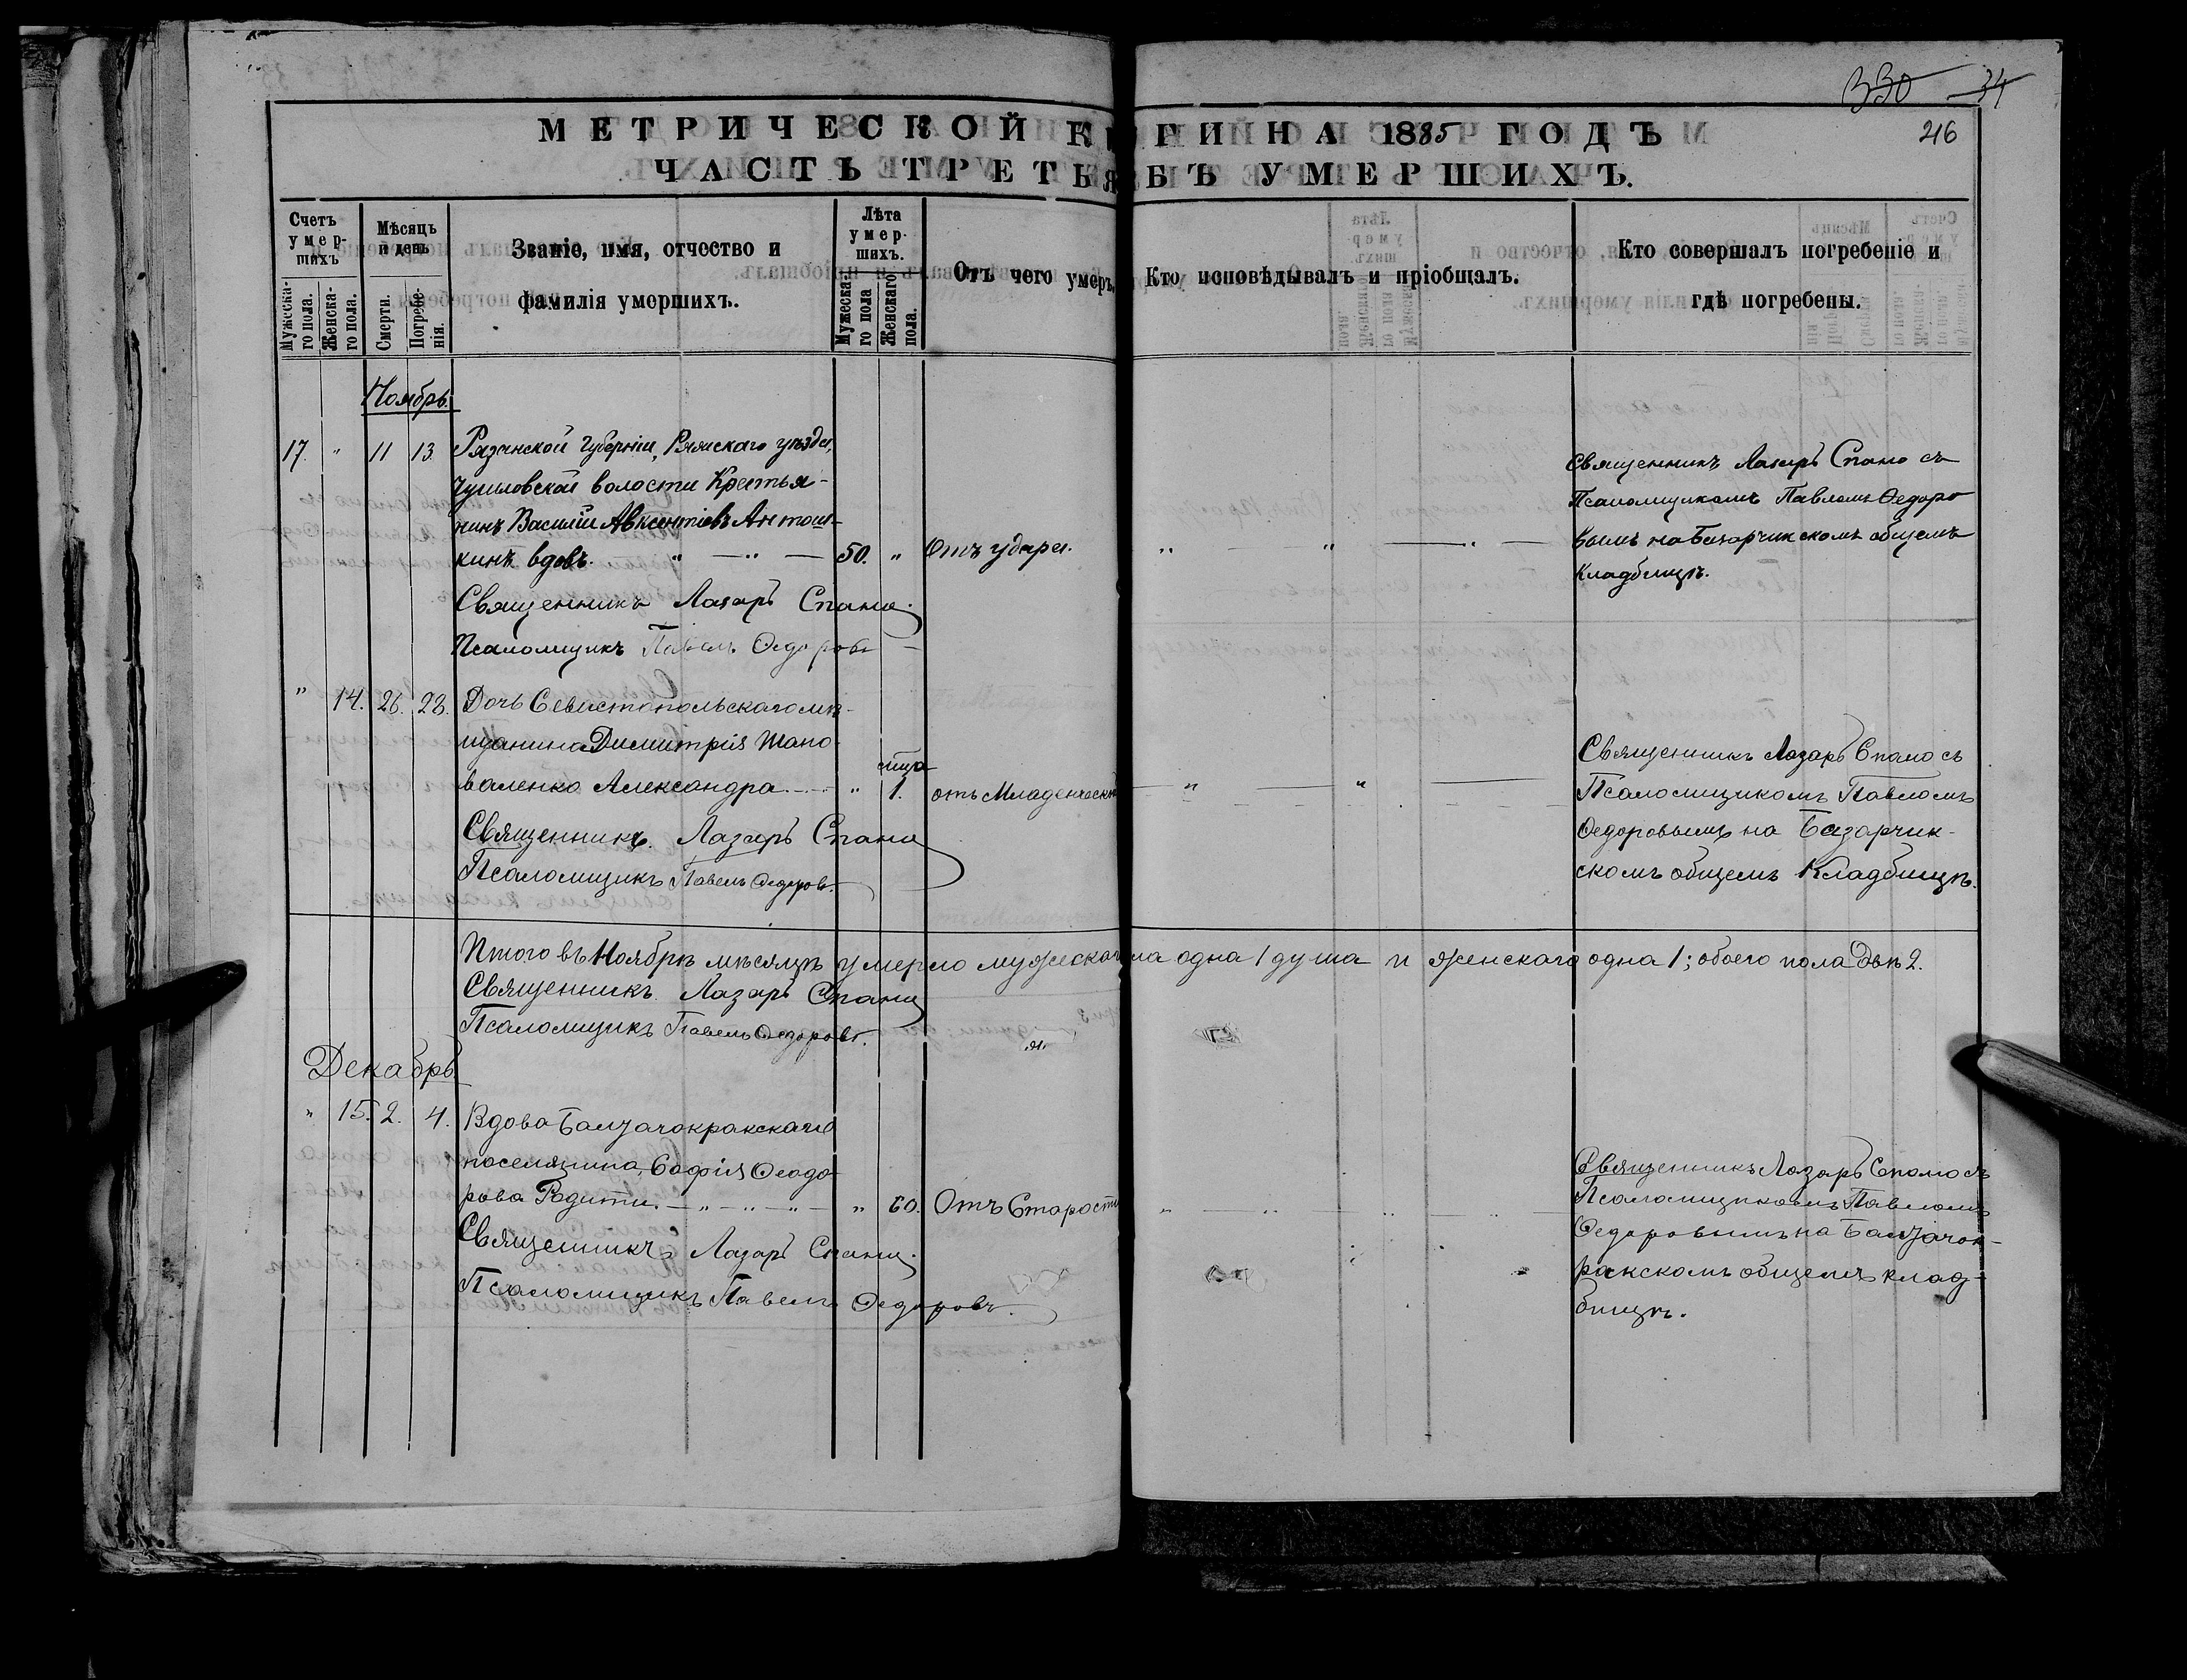 330 34
МЕТРИЧЕСКОЙ КНИГИ НА 1885 ГОДЪ
216
ЧАСТЬ ТРЕТЬЯ О УМЕРШИХЪ.
Счетъ умер-шихъ
Мужеска-го пола.
Женска-го пола.
Мѣсяцъ и день
Смерти.
Погребе-нія.
Званіе, имя, отчество и
фамилія умершихъ.
Лѣта умер-шихъ.
Мужеска-го пола
Женскаго пола.
Отъ чего умеръ.
Кто исповѣдывалъ и пріобщалъ.
Кто совершалъ погребеніе и
гдѣ погребены.
Ноябрь.
17. " 11 13. Рязанской Губерніи, Ряжскаго уѣзда,
волости Крестья-
нинъ Василій Авксентіевъ Антош-
кинъ вдовъ. " — " — 50. " Отъ удара. " — " — " —
Священникъ Лазарь Спано съ
Псаломщикомъ Павломъ Ѳедоро
вымъ на Базарчикскомъ общемъ
кладбищѣ.
Священникъ Лазарь Спано.
Псаломщикъ Павелъ Ѳедоровъ
" 14. 26. 28. Дочь Севастопольскаго мѣ-
щанина Димитрія Шапо-
валенко Александра. " 1. отъ Младенческой — " — " —
Священникъ Лазарь Спано съ
Псаломщикомъ Павломъ
Ѳедоровымъ на Базарчик-
скомъ общемъ Кладбищѣ.
Священникъ. Лазарь Спано
Псаломщикъ Павелъ Ѳедоровъ.
Итого въ Ноябрѣ мѣсяцѣ умерло мужескаго пола одна 1 душа и женскаго одна 1; обоего пола двѣ 2.
Священникъ. Лазарь Спано
Псаломщикъ Павелъ Ѳедоровъ.
Декабрь
" 15. 2. 4. Вдова
поселянина, Софія Ѳеодо-
рова — " — " — " — " 60. Отъ Старости " — " — " — " —
Священникъ Лазарь Спано съ
Псаломщикомъ Павломъ
Ѳедоровымъ на
общемъ клад-
бищѣ.
Священникъ Лазарь Спано.
Псаломщикъ Павелъ Ѳедоровъ.